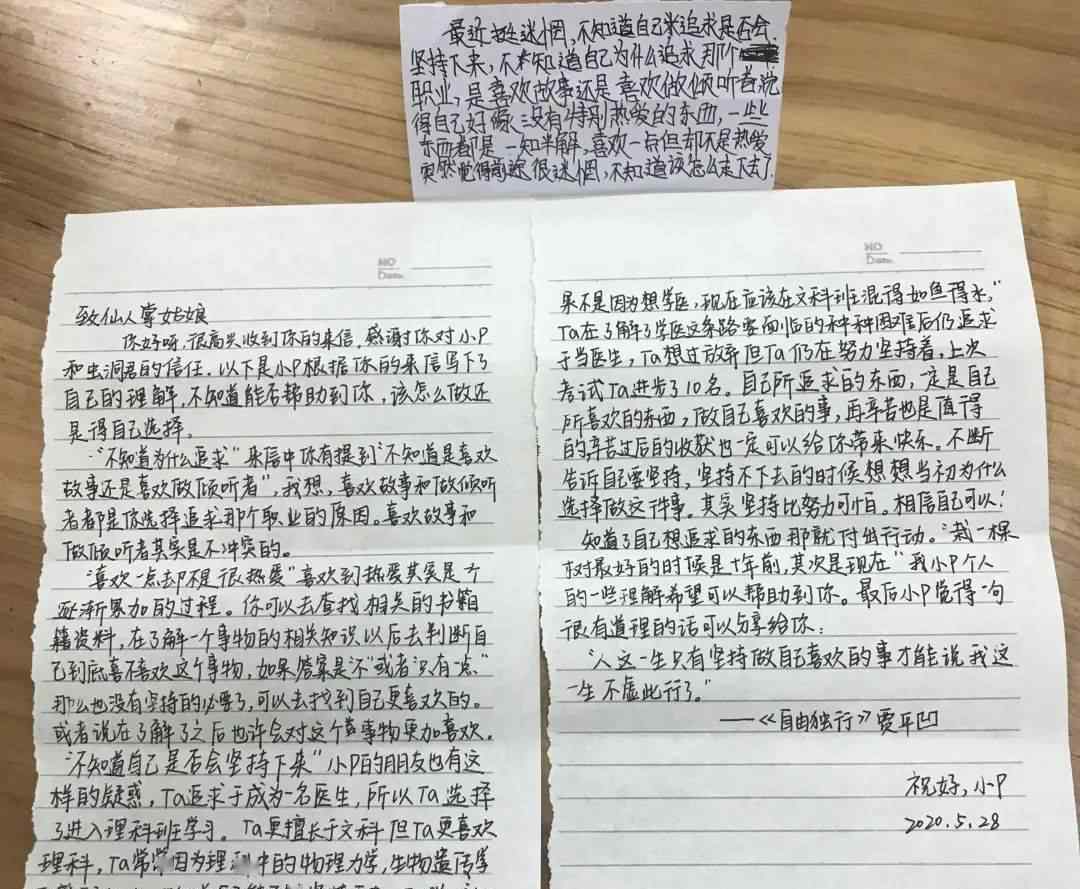 最近挺迷惘,不知道自己米追求是否会
坚持下来,不知道自己为什么追求那个
职业,是喜欢故事还是喜欢做倾听者,觉
得自己好像没有特别热爱的东西,一些
东西都是一知半解,喜欢一点但却不是热爱
突然觉得前途很迷惘,不知道该怎么走下去了.
NO
Date
致仙人掌姑娘
你好呀,很高兴收到你的来信,感谢你对小P
和虫洞君的信任。以下是小P根据你的来信写下了
自己的理解,不知道能否帮助到你,该怎么做还
是得自己选择。
"不知道为什么追求"来信中你有提到"不知道是喜欢
故事还是喜欢做倾听者",我想,喜欢故事和做倾听
者都是你选择追求那个职业的原因。喜欢故事和
做倾听者其实是不冲突的。
"喜欢一点却不是很热爱"喜欢到热爱其实是个
逐渐累加的过程。你可以去查找相关的书籍
籍资料,在了解一个事物的相关知识以后去判断自
己到底喜不喜欢这个事物,如果答案是"不"或者"只有一点"
那么也没有坚持的必要了,可以去找到自己更喜欢的。
或者说在了解了之后也许会对这个事物更加喜欢。
"不知道自己是否会坚持下来"小P的朋友也有这
样的疑惑,Ta追求于成为一名医生,所以Ta选择
了进入理科班学习。Ta更擅长于文科但Ta更喜欢
理科,Ta常常因为理科中的物理力学,生物遗传学
NO
Date
果不是因为想学医,现在应该在文科班混得如鱼得水,"
Ta在了解了学医这条路要面临的种种困难后仍追求
于当医生,Ta想过放弃但Ta仍在努力坚持着,上次
考试Ta进步了10名。自己所追求的东西,一定是自己
所喜欢的东西,做自己喜欢的事,再辛苦也是值得
的辛苦过后的收获也一定可以给你带来快乐。不断
告诉自己要坚持,坚持不下去的时候想想当初为什么
选择做这件事。其实坚持比努力可怕。相信自己可以!
知道了自己想追求的东西那就付出行动。"栽一棵
树最好的时候是十年前,其次是现在"我小P个人
的一些理解希望可以帮助到你。最后小P觉得一句
很有道理的话可以分享给你:
"人这一生只有坚持做自己喜欢的事才能说我这
一生不虚此行了。"
——《自由独行》贾平凹
祝好,小P
2020.5.28